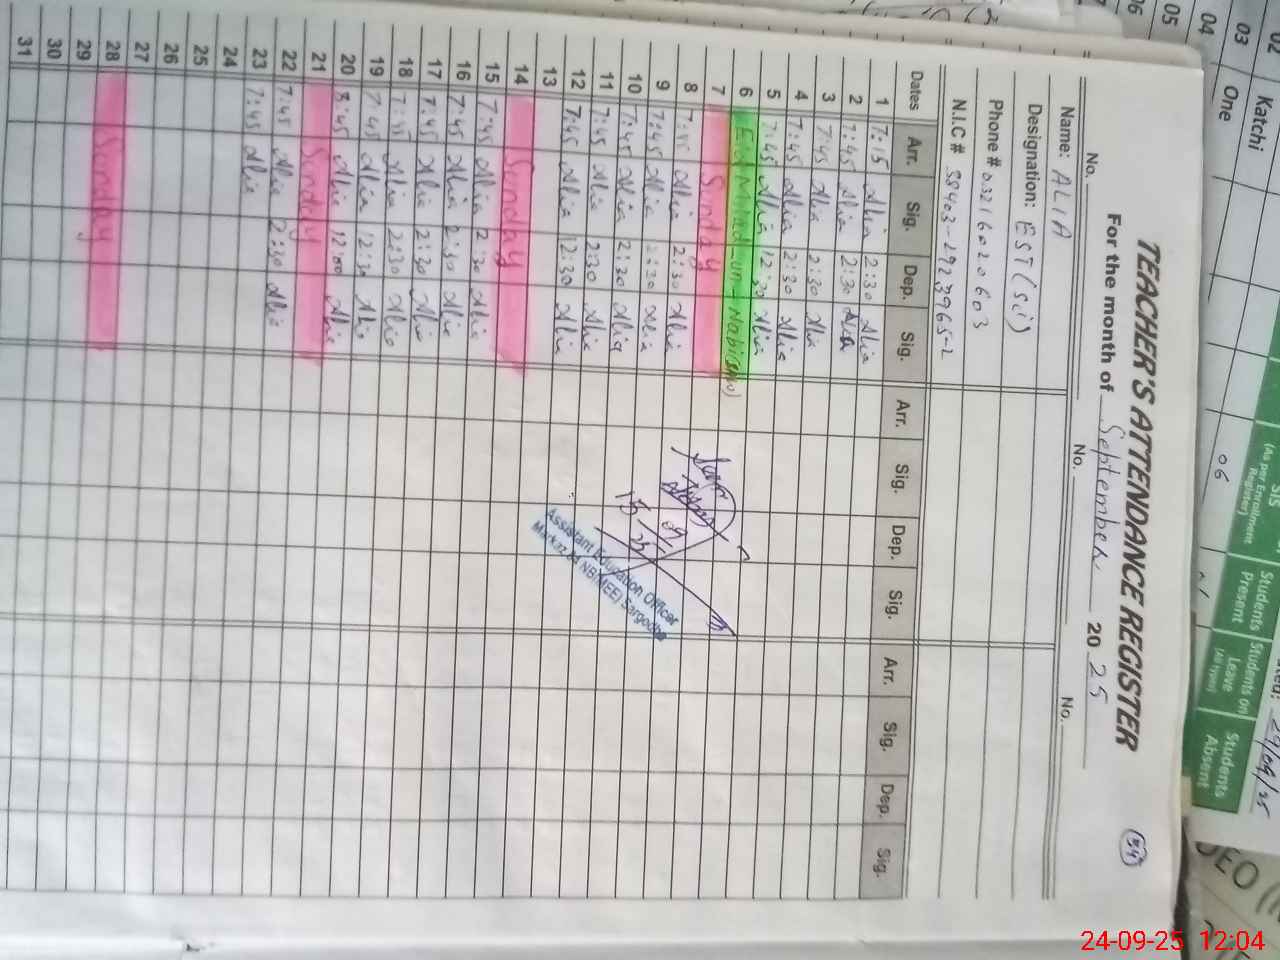 TEACHER'S ATTENDANCE REGISTER
54
For the month of September 2025
No. No. No.
Name: ALIA
Designation: EST (Sci)
Phone # 03216020603
N.I.C # 38403-2923965-2
Dates Arr. Sig. Dep. Sig. Arr. Sig. Dep. Sig. Arr. Sig. Dep. Sig.
1 7:15 Alia 2:30 Alia
2 7:45 Alia 2:30 Alia
3 7:45 Alia 2:30 Alia
4 7:45 Alia 2:30 Alia
5 7:45 Alia 12:30 Alia
6 Eid Milad-un-Nabi (SAW)
7 Sunday
8 7:45 Alia 2:30 Alia
9 7:45 Alia 2:30 Alia
10 7:45 Alia 2:30 Alia
11 7:45 Alia 2:30 Alia
12 7:45 Alia 12:30 Alia
13
14 Sunday
15 7:45 Alia 2:30 Alia
16 7:45 Alia 2:30 Alia
17 7:45 Alia 2:30 Alia
18 7:45 Alia 2:30 Alia
19 7:45 Alia 12:30 Alia
20 8:45 Alia 12:00 Alia
21 Sunday
22 7:45 Alia 2:30 Alia
23 7:45 Alia
24
25
26
27
28 Sunday
29
30
31
Assistant Education Officer
NB(MEE) Sargodha
SIS
(As per Enrollment
Register)
Students
Present
Students on
Leave
(All types)
Students
Absent
02 Katchi
03 One 06
04
05
06
24/09/25
24-09-25 12:04